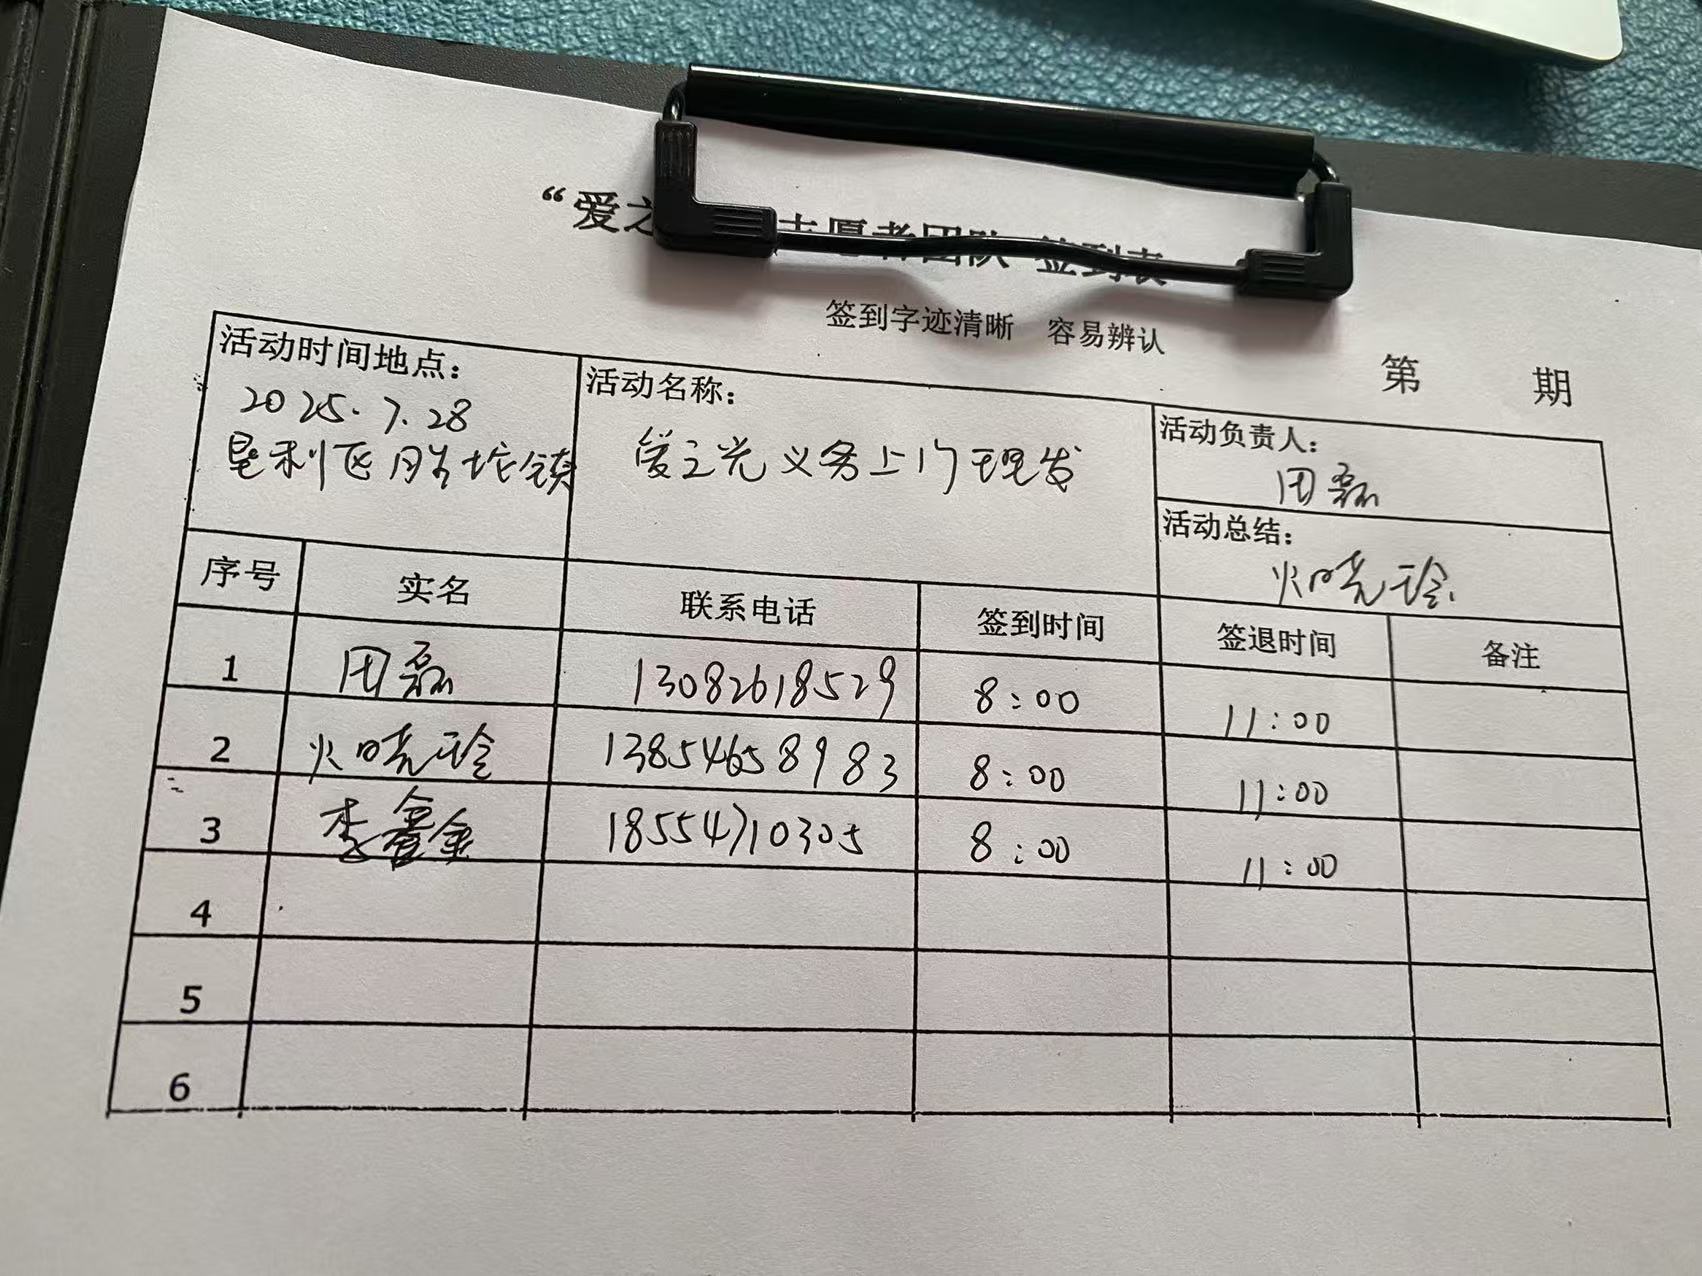 “爱之 志愿者团队 签到表
签到字迹清晰 容易辨认
第 期
活动时间地点：
2025.7.28
垦利区胜坨镇
活动名称：
爱之光义务上门理发
活动负责人：
田磊
活动总结：
火晓玲
序号 实名 联系电话 签到时间 签退时间 备注
1 田磊 13082618529 8:00 11:00
2 火晓玲 13854658983 8:00 11:00
3 李鑫 18554710305 8:00 11:00
4
5
6